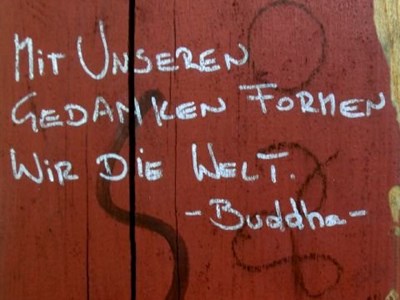 MIT UNSEREN
GEDANKEN FORMEN
WIR DIE WELT.
-Buddha-